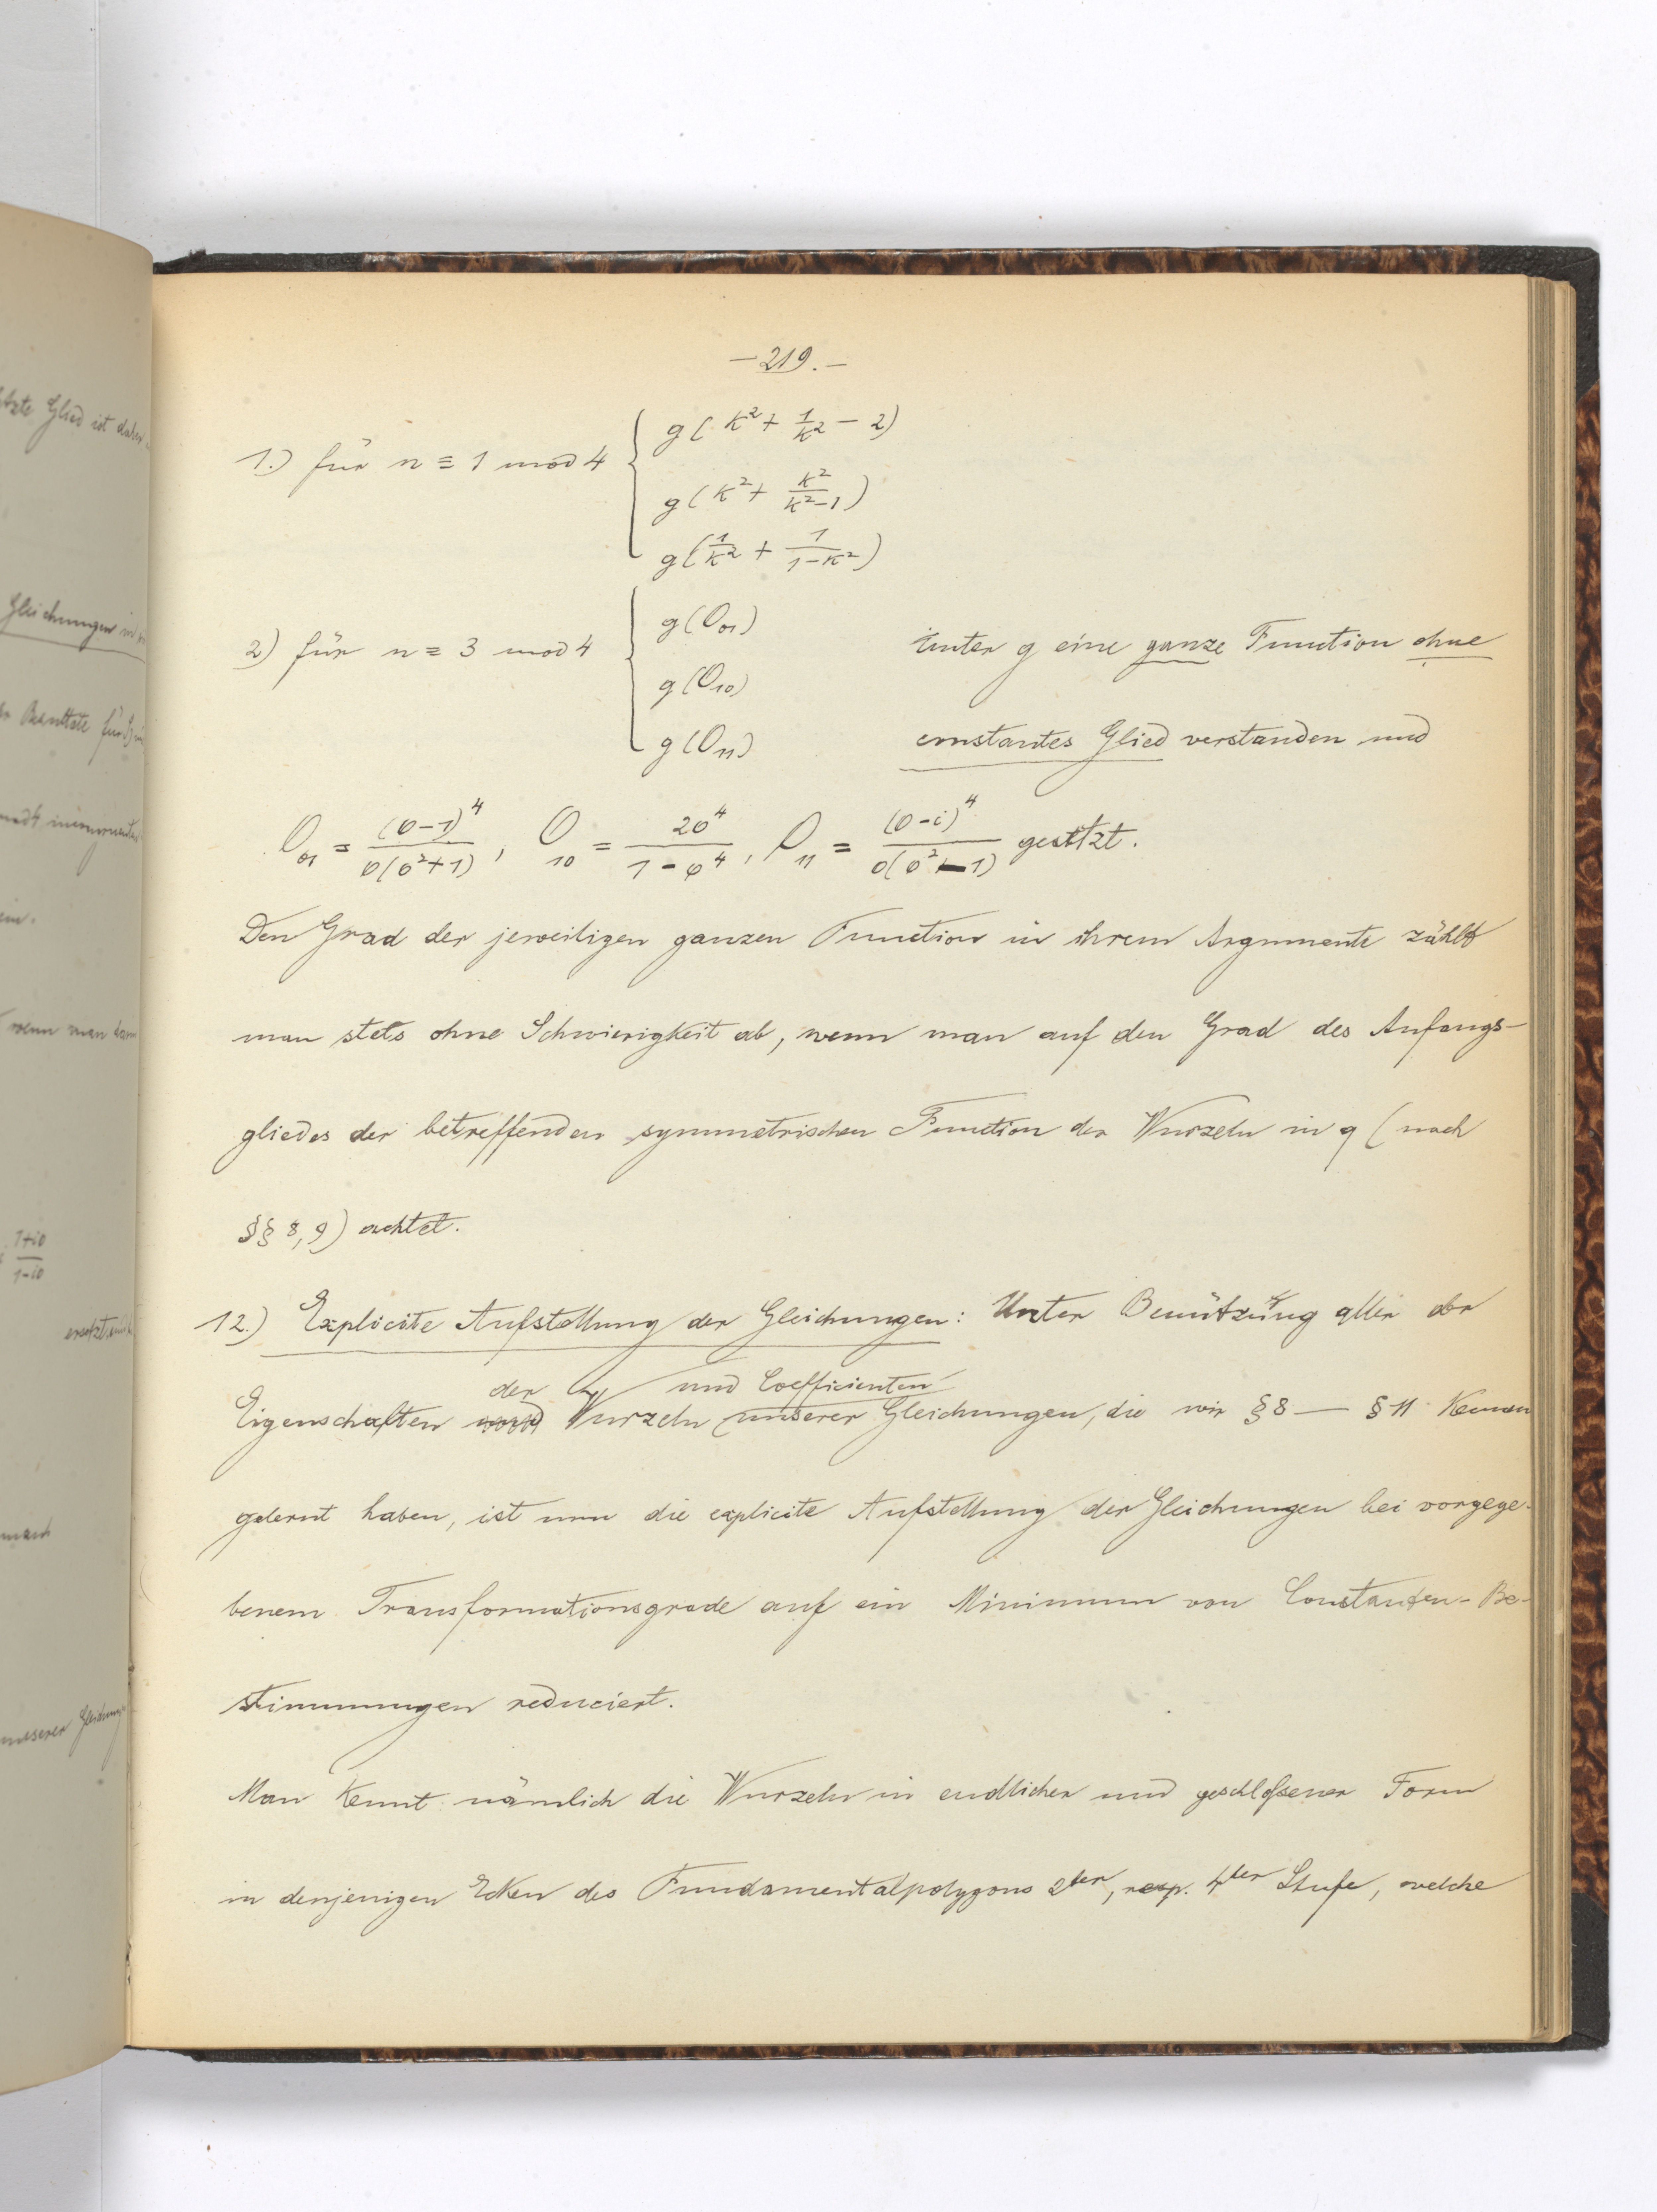 – 219. –
1.) für n ≡ 1 mod 4 { g(k² + 1/k² – 2)
g(k² + k²/(k²–1))
g(1/k² + 1/(1–k²))
2) für n ≡ 3 mod 4 { g(O₀₁)
g(O₁₀)
g(O₁₁)
unter g eine ganze Function ohne
constantes Glied verstanden und
O₀₁ = (σ–1)⁴/σ(σ²+1), O₁₀ = 2σ⁴/(1–σ⁴), O₁₁ = (σ–i)⁴/σ(σ²–1) gesetzt.
Den Grad der jeweiligen ganzen Function in ihrem Argumente zählt
man stets ohne Schwierigkeit ab, wenn man auf den Grad des Anfangs-
gliedes der betreffenden symmetrischen Function der Wurzeln in q (nach
§§ 8, 9) achtet.
12.) Explicite Aufstellung der Gleichungen: Unter Benützung aller der
der und Coefficienten
Eigenschaften Wurzeln unserer Gleichungen, die wir § 8 — § 11 kennen
gelernt haben, ist nun die explicite Aufstellung der Gleichungen bei vorgege-
benem Transformationsgrade auf ein Minimum von Constanten-Be-
stimmungen reduciert.
Man kennt nämlich die Wurzeln in endlicher und geschloßener Form
in denjenigen Ecken des Fundamentalpolygons 2ter, resp. 4ter Stufe, welche
tzte Glied ist daher
Gleichungen
Resultate für
wenn man
1+iσ
1–iσ
ersetzt
unserer Gleichung